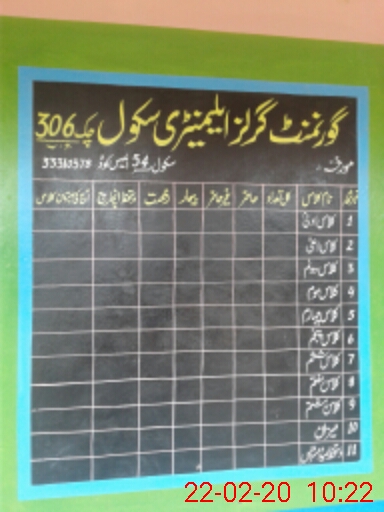 گورنمنٹ گرلز ایلیمنٹری سکول چک 306
مورخہ سکول 54 ایمس کوڈ 33310578
نمبر نام کلاس کل تعداد حاضر غیر حاضر بیمار رخصت دستخط انچارج
1 کلاس ادنیٰ
2 کلاس اعلیٰ
3 کلاس دوئم
4 کلاس سوم
5 کلاس چہارم
6 کلاس پنجم
7 کلاس ششم
8 کلاس ہفتم
9 کلاس ہشتم
10 میزان
11 دستخط ہیڈ مسٹریس
22-02-20 10:22